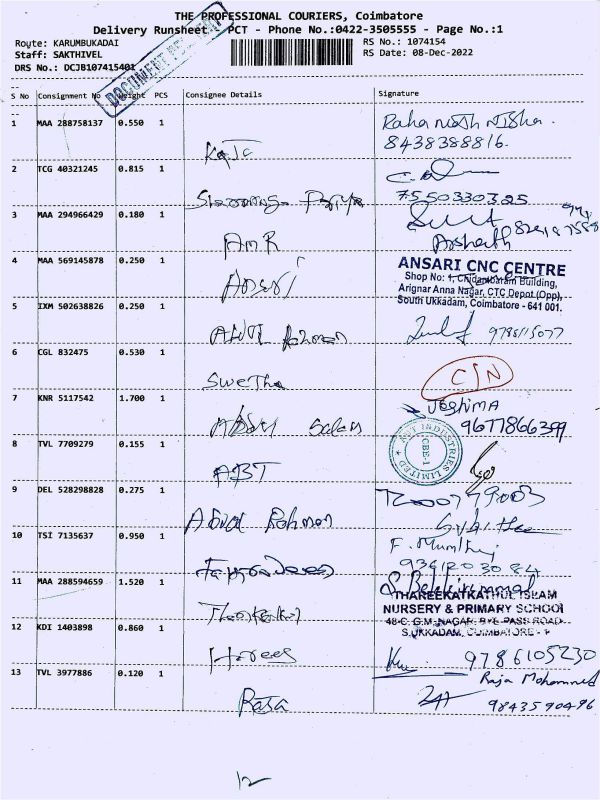 THE PROFESSIONAL COURIERS, Coimbatore
Delivery Runsheet PCT - Phone No.:0422-3505555 - Page No.:1
Route: KARUMBUKADAI
RS No.: 1074154
Staff: SAKTHIVEL
RS Date: 08-Dec-2022
DRS No.: DCJB107415401
S No Consignment No Weight PCS Consignee Details Signature
1 MAA 288758137 0.550 1 Raja
8438388816.
2 TCG 40321245 0.815 1 Priya
7550330325
3 MAA 294966429 0.180 1 AMR
4 MAA 569145878 0.250 1 Ansari
ANSARI CNC CENTRE
Shop No: 1, Chidambaram Building,
Arignar Anna Nagar, CTC Depot (Opp),
South Ukkadam, Coimbatore - 641 001.
5 IXM 502638826 0.250 1 Abdul Rahman
9788115077
6 CGL 832475 0.530 1 Swetha
C/N
7 KNR 5117542 1.700 1 Abdul Salam
Joshima
9677866399
8 TVL 7709279 0.155 1 ABT
INDUSTRIES LIMITED
CBE-1
9 DEL 528298828 0.275 1 Abdul Rahman
10 TSI 7135637 0.950 1
F.
11 MAA 288594659 1.520 1
THAREEKATHUL ISLAM
NURSERY & PRIMARY SCHOOL
48-C, G.M. NAGAR, BYE PASS ROAD
S.UKKADAM, COIMBATORE - 1
12 KDI 1403898 0.860 1 Harees
9786105230
13 TVL 3977886 0.120 1 Raja
Raja Mohammed
9843590496
12